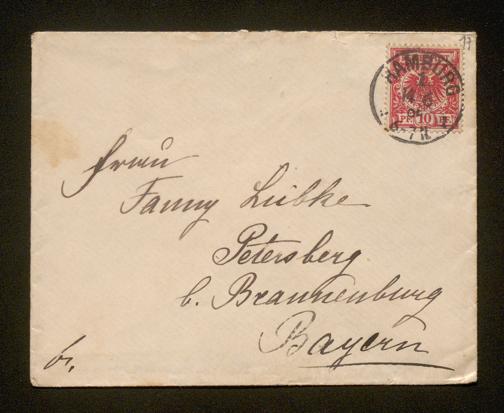 17
HAMBURG
1
PF 10 PF
Frau
Fanny Lübke
Petersberg
b. Brannenburg
Bayern
fr.